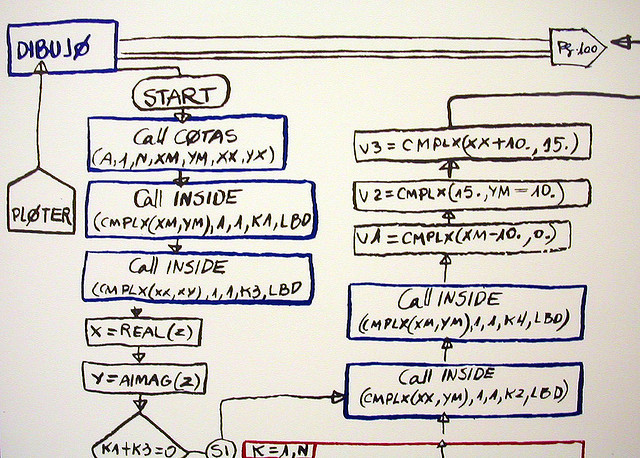 DIBUJØ
Pg.100
START
Call CØTAS
(A,1,N,XM,YM,XX,YX)
Call INSIDE
(CMPLX(XM,YM),1,1,K1,LBD
PLØTER
Call INSIDE
(CMPLX(XX,XY),1,1,K3,LBD
X=REAL(Z)
Y=AIMAG(Z)
K1+K3=0
SI
K=1,N
V3=CMPLX(XX+10.,15.)
V2=CMPLX(15.,YM-10.)
V1=CMPLX(XM-10.,0.)
Call INSIDE
(CMPLX(XM,YM),1,1,K4,LBD)
Call INSIDE
(CMPLX(XX,YM),1,1,K2,LBD)